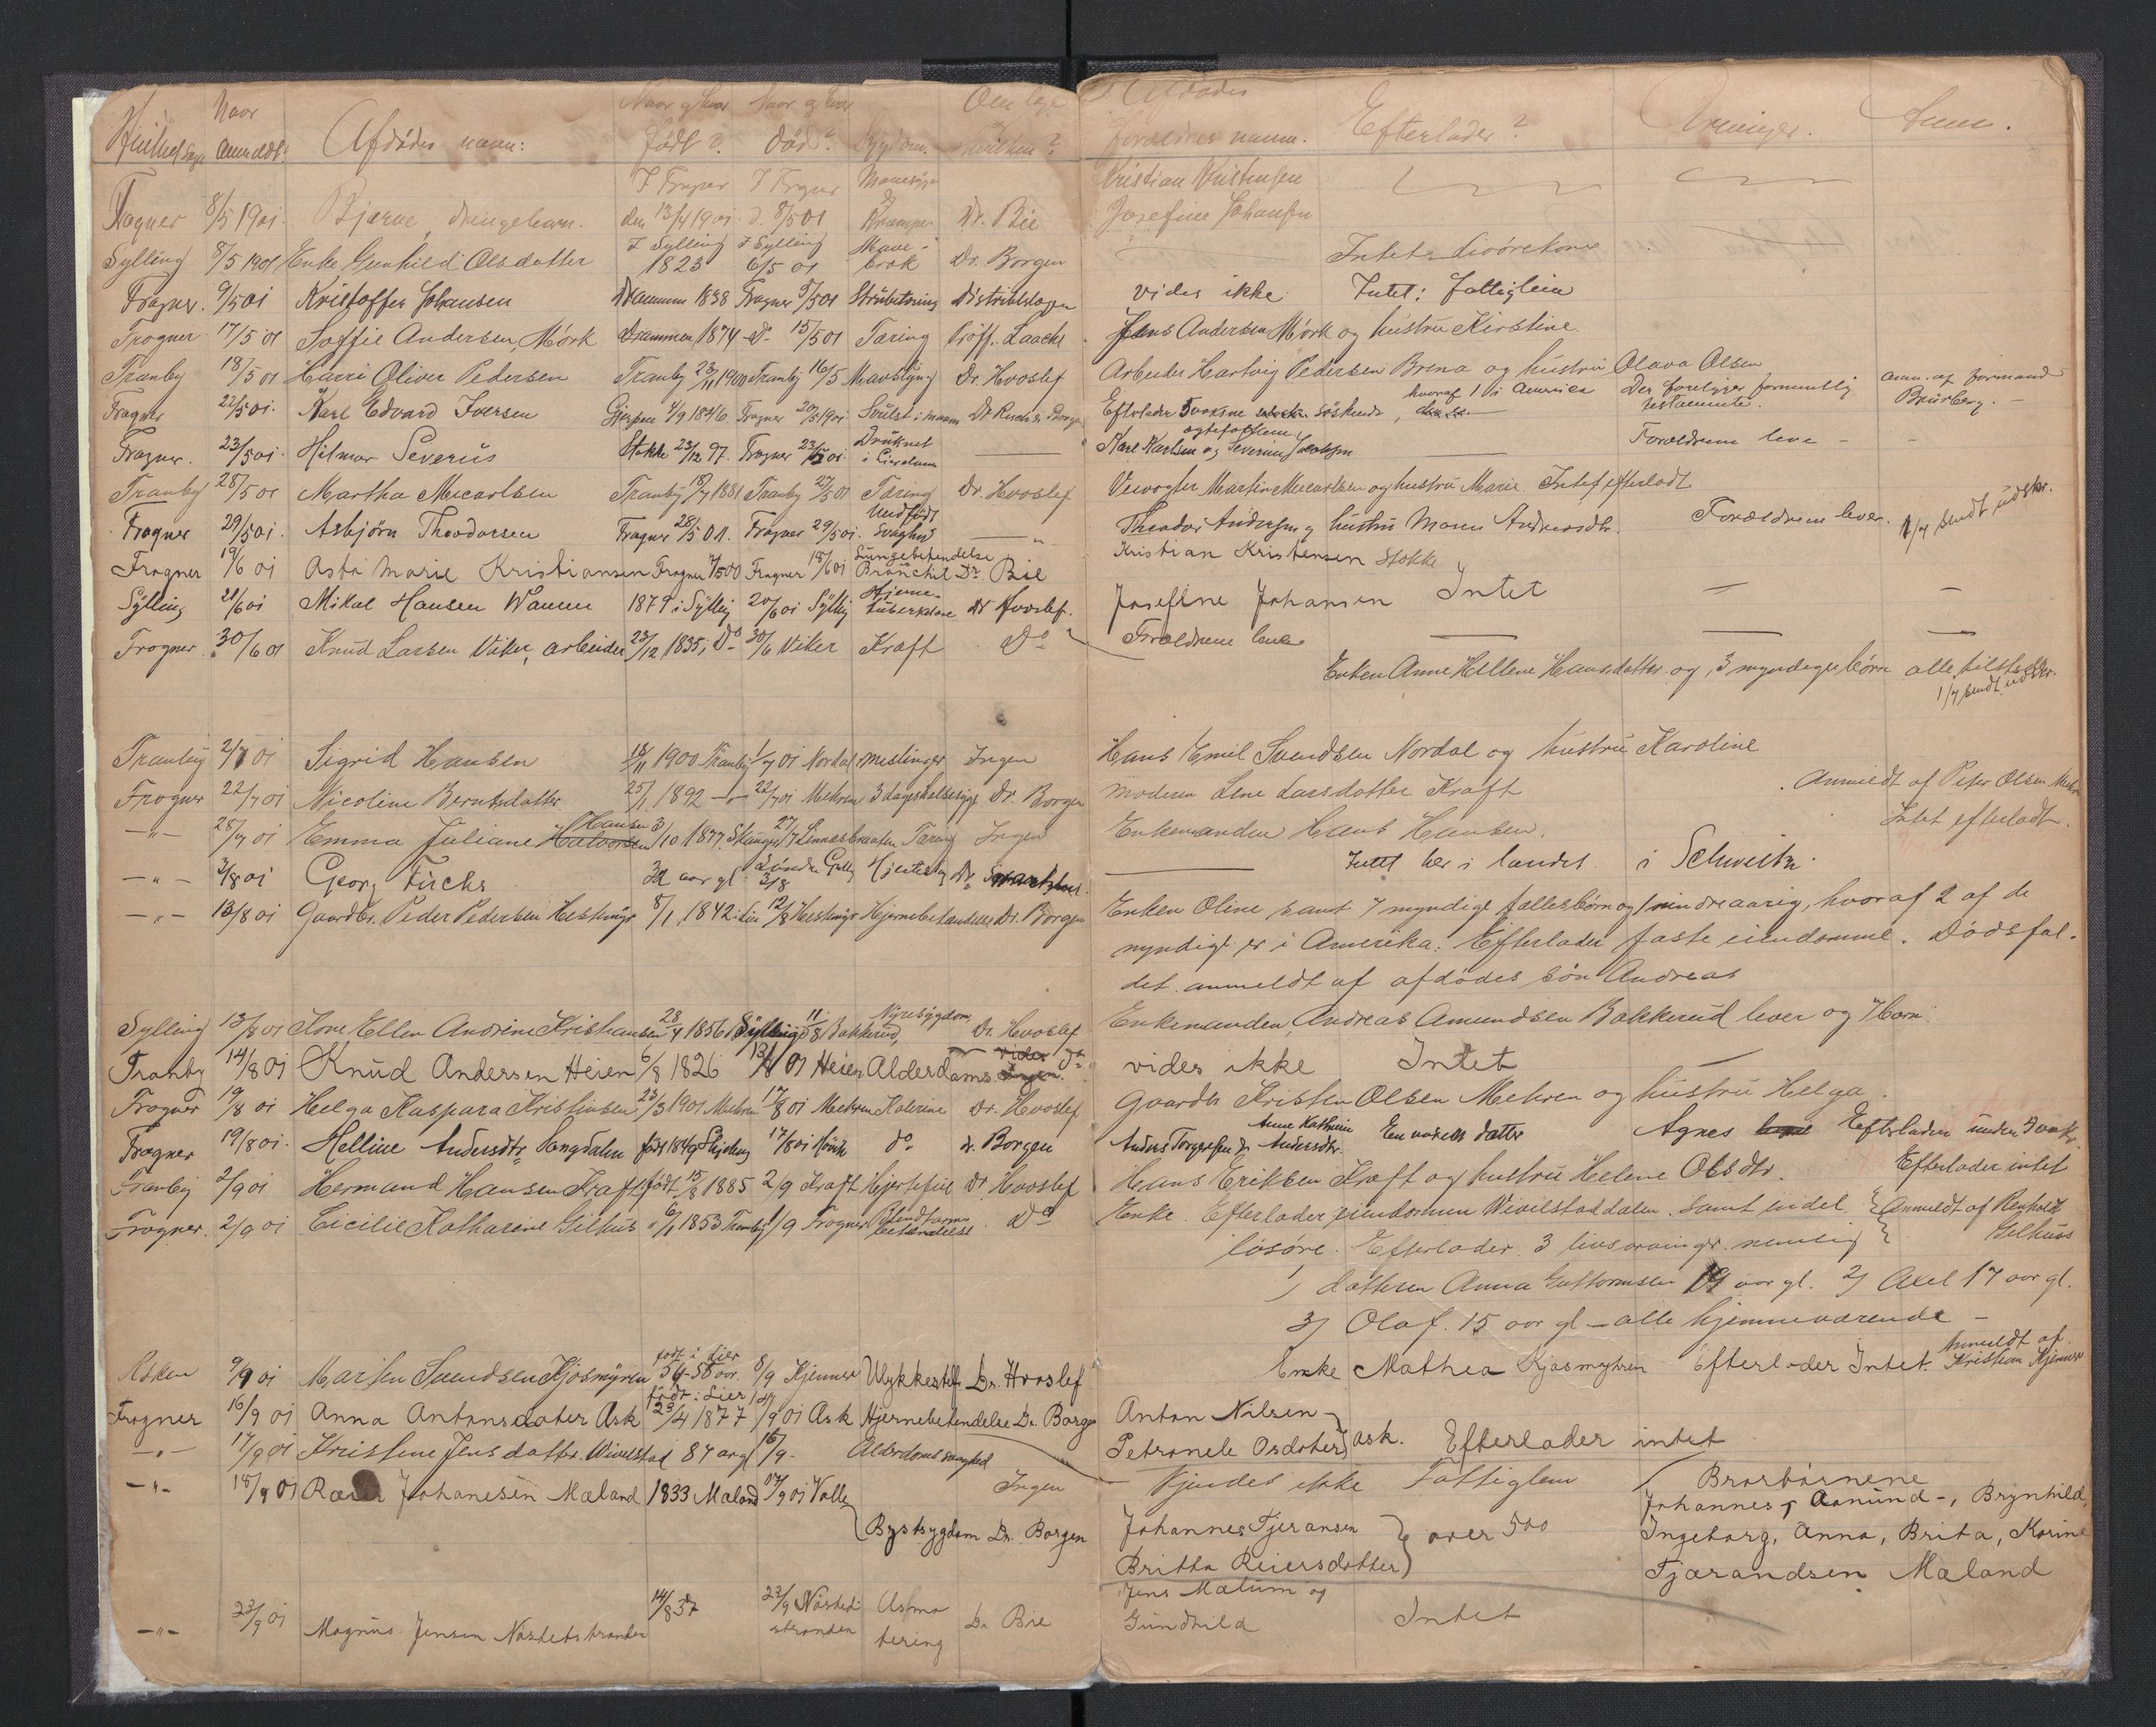 Hvilket sogn Naar anmeldt? Afdødes navn: Naar og hvor født? Naar og hvor død? Sygdom. Om læge hvilken? Afdødes forældres navn. Efterlader? Arvinger. Anm.
Frogner 8/5 1901. Bjarne, drengebarn. I Frogner den 13/4 1901. I Frogner d. 8/5 01 Mavesyge og Krampe Dr. Bie Kristian Kristensen Josefine Johansen
Sylling 8/5 1901 Enke Gunhild Olsdatter I Sylling 1823 I Sylling 6/5 01 Mave- Dr. Borgen Intet
Frogner. 9/5 01 Kristoffer Johansen Drammen 1838 Frogner 9/5 01 Strubetæring Distriktslægen vides ikke Intet: fattiglem
Frogner 17/5 01 Soffie Andersen, Mörk Drammen 1874 do 15/5 01 Tæring Proff. Laache Jens Andersen Mörk og hustru Kirstine.
Tranby 18/5 01 Harri Oliver Pedersen Tranby 23/11 1900 Tranby 16/5 Dr. Hvoslef Arbeider Hartvig Pedersen Brena og hustru Olava Olsen
Frogner 22/5 01. Karl Edvard Iversen 4/9 1846. Frogner 20/5 1901 Svulst i maven Efterlader søskende, hvoraf 1 i America Der foreligger formentlig testamente. anm. af formand Bruberg. -
Frogner. 23/5 01. Hilmar Severus Stokke 23/12 97. Frogner 23/5 01 Druknet Karl Karlsen og Severine Jacobsen Forældrene lever - -
Tranby 28/5 01 Martha Mecarlsen Tranby 18/7 1881 Tranby 27/5 01 Tæring Dr. Hvoslef Veivogter Martin Mecarlsen og hustru Marie. Intet efterladt
Frogner 29/5 01. Asbjörn Theodorsen Frogner 28/5 01. Frogner 29/5 01. Medfødt svaghed - " - Theodor Andersen og hustru Maren Andersdtr. Forældrene lever. 1/7 sendt udskr.
Frogner 19/6 01 Asta Marie Kristiansen Frogner 7/5 00 Frogner 18/6 01 Lungebetendelse Dr Bie Kristian Kristensen Stokke
Josefine Johansen Intet - -
Sylling 21/6 01 Mikal Hansen 1879 i Sylling 20/6 01 Sylling Hjernetuberkelose Dr Hvoslef. Forældrene lever
Frogner 30/6 01 Knud Larsen Viker, arbeider 23/12 1835, Do 30/6 Viker Kræft Do
Enken Anne Hellene Hansdatter og 3 myndige börn alle tilstede 1/7 sendt udskr.
Tranby 2/7 01 Sigrid Hansen 18/11 1900 Tranby 1/7 01 Nordal meslinger Ingen Hans Emil Svendsen Nordal og hustru Karoline
Frogner 22/7 01 Nicoline Berntsdatter 25/1 1892 - " - 22/7 01 Mehren 3 dags halsesyge Dr. Borgen moderen Lene Larsdatter Kraft Anmeldt af Peter Olsen Mehren
Intet efterladt.
- " - 28/7 01 Emma Juliane Halvorsen Hansen 3/10 1877. 27/7 Linnesbraaten Tæring Ingen Enkemanden Hans Hansen.
- " - 3/8 01 Georg Fuchs 32 aar gl. 3/8 Dr. Intet her i landet i Schweitz.
- " - 13/8 01 Gaardbr. Peder Pedersen Hestengs 8/1 1842 i Lier 12/8 Hestengs Hjernebetændelse Dr. Borgen Enken Oline samt 7 myndige fællesbörn og 1 mindreaarig, hvoraf 2 af de
myndige er i Amerika. Efterlader faste eiendomme. Dödsfal-
det anmeldt af afdödes sön Andreas
Sylling 13/8 01 Kone Ellen Andrine Kristiansen 28/4 1856 i Sylling 11/8 Bakkerud, Nyresygdom, Dr. Hvoslef Enkemanden, Andreas Amundsen Bakkerud lever og 7 børn.
Tranby 14/8 01 Knud Andersen Heien 6/8 1826 13/8 01 Heien Alderdoms Do vides ikke Intet -
Frogner 19/8 01 Helga Kaspara Kristiansen 23/3 1901 Mehren 17/8 01 Mehren Kolerine Dr. Hvoslef Gaardbr Kristen Olsen Mehren og hustru Helga.
Frogner 19/8 01. Helline Andersdtr Sangdalen født 1849 17/8 01 do Dr. Borgen Anders Torgersen og Anne Kathrine Andersdtr. En voksen datter Agnes
Tranby 2/9 01 Hermand Hansen Kraft født 15/8 1885 2/9 Kraft Hjertefeil Dr Hvoslef Hans Eriksen Kræft og hustru Helene Olsdtr. Efterlader intet
Frogner. 2/9 01 Cicilie Katharine Gilhus 6/1 1853 Tranby 1/9 Frogner Blindtarmsbetændelse Do Enke. Efterlader eiendommen Wivelstaddalen. samt endel Anmeldt af Renholdt Gilhuss
løsøre. Efterlader 3 livsarvinger nemlig
1) datteren Anna Guttormsen 19 aar gl. 2) Axel 17 aar gl.
3) Olaf. 15 aar gl - alle hjemmeværende -
Asken 9/9 01 Marten Svendsen Kjosmyren født i Lier 54-55 aar. 8/9 Kjenner Ulykkestilf. Dr. Hvoslef Enke Mathea Kjosmyhren Efterlader Intet. Anmeldt af Kristian Kjenner
Frogner 16/9 01 Anna Antonsdater Ask født i Lier 23/4 1877 14/9 01 Ask Hjernebetendelse Dr. Borgen Anton Nilsen
Petronele Osdater} Ask. Efterlader intet
- " - 17/9 01 Kristine Jensdatter. Wivelstad 87 aar gl 16/9 - Alderdomssvaghed Ingen Kjendes ikke Fattiglem
- " - 18/9 01 Johanesen Mæland 1833 Mæland 17/9 01 Valle Brystsygdom Dr. Borgen Johannes Tjeransen
Britha Reiersdatter} over 500 Brorbörnene
Johannes, Aanund -, Brynhild,
Ingeborg, Anna, Brita, Karine
Tjærandsen Mæland
- " - 23/9 01 Magnus Jensen Nøstetstranden 14/8 37 22/9 Nøsted-stranden Asma tering Dr Bie Jens Mælum og
Gundhild Intet